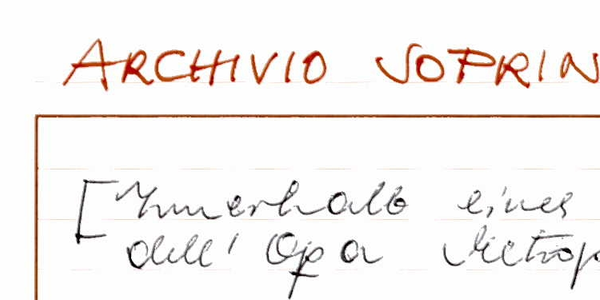 ARCHIVIO SOPRIN
[Innerhalb eines
dell' Opa Metrop